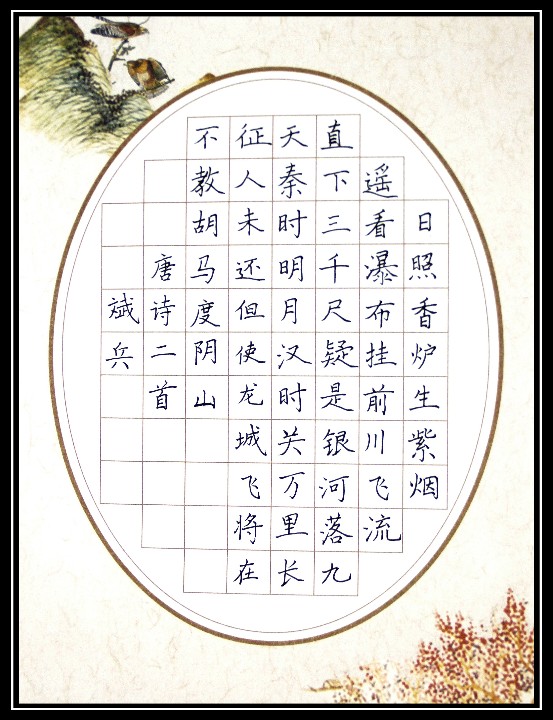 日照香炉生紫烟
遥看瀑布挂前川飞流
直下三千尺疑是银河落九
天秦时明月汉时关万里长
征人未还但使龙城飞将在
不教胡马度阴山
唐诗二首
斌兵